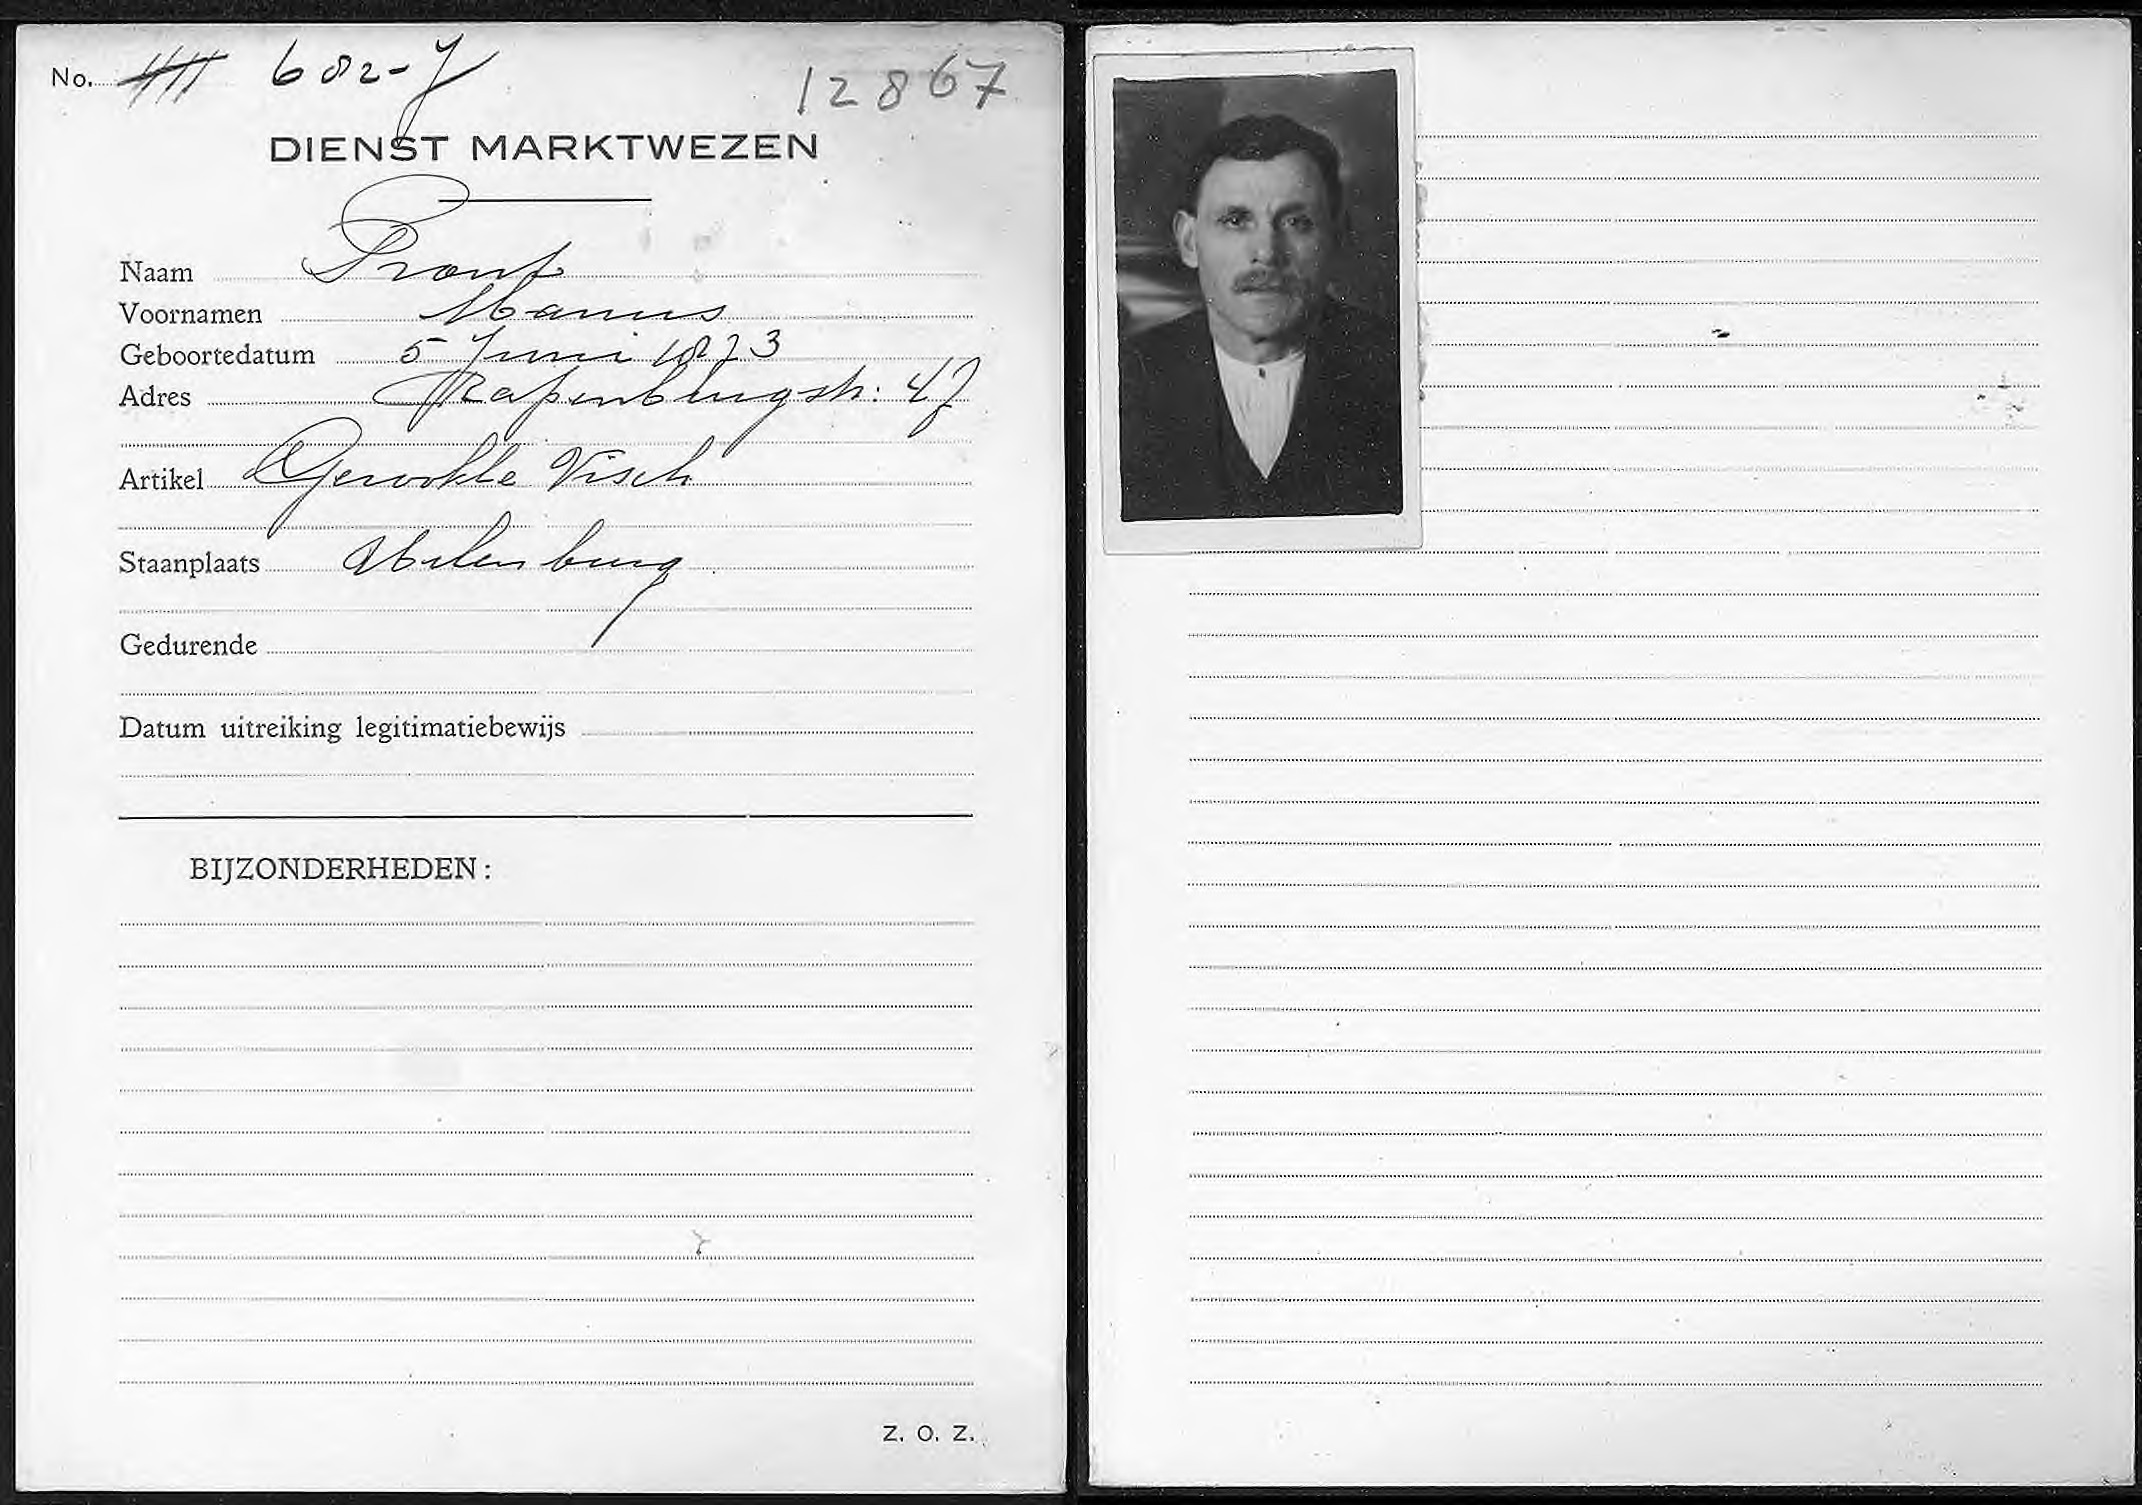 No. 682-J
12867
DIENST MARKTWEZEN
Naam Pront
Voornamen Manus
Geboortedatum 5 Juni 1873
Adres Rapenburgstr: 47
Artikel Gerookte Visch
Staanplaats Uilenburg
Gedurende
Datum uitreiking legitimatiebewijs
BIJZONDERHEDEN:
Z. O. Z.